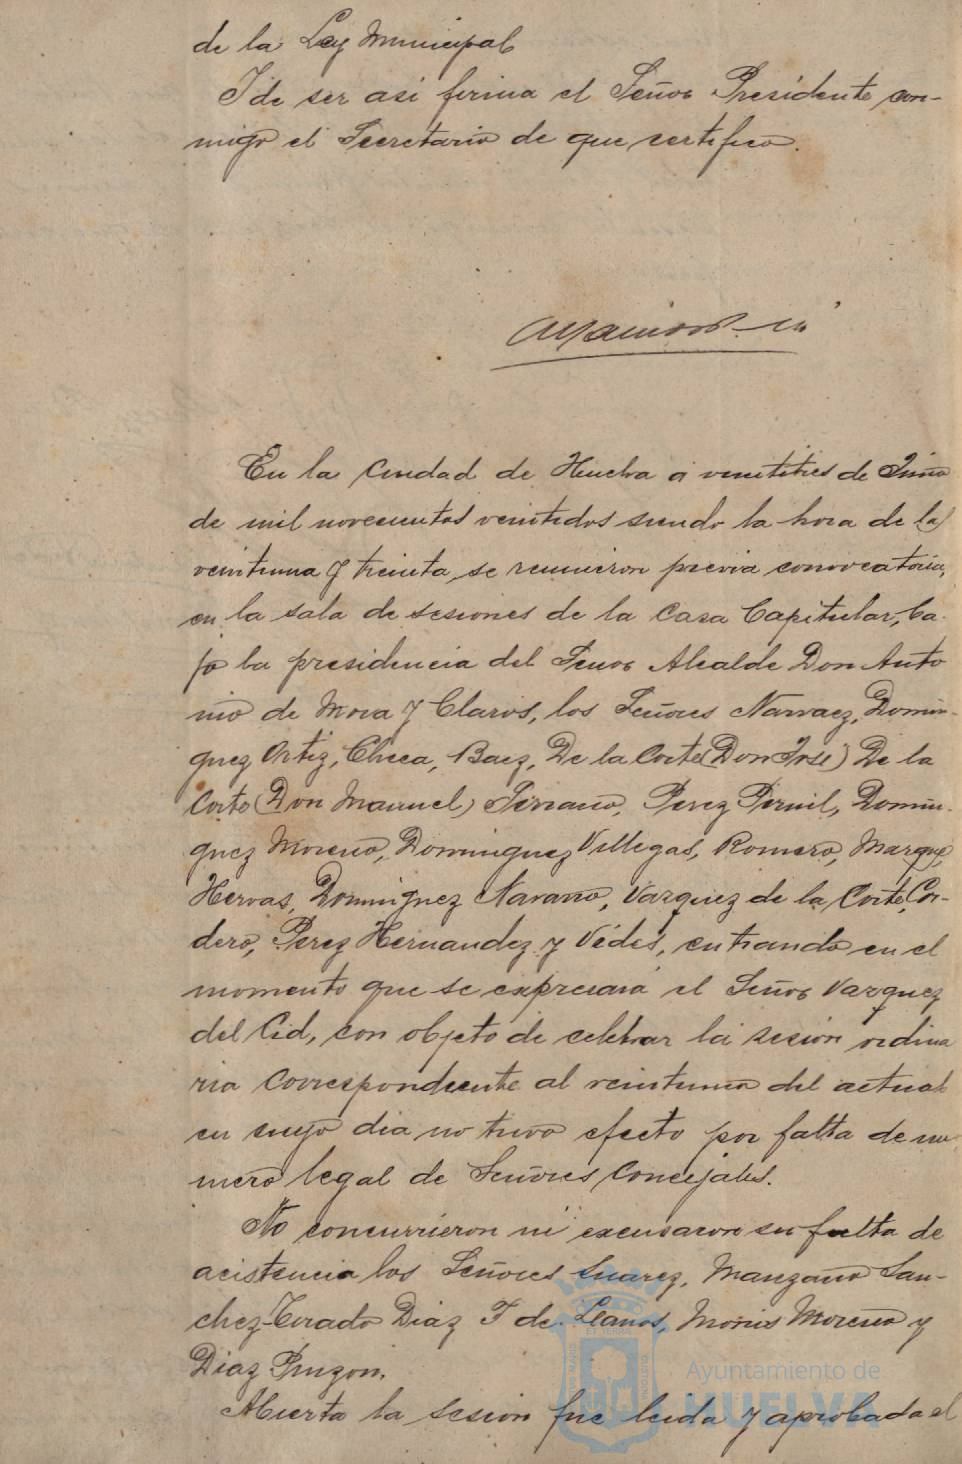 de la Ley Municipal
I de ser asi firma el Señor Presidente con-
migo el Secretario de que certifico.
En la Ciudad de Huelva a veintitres de Junio
de mil novecientos veintidos siendo la hora de la
veintiuna y treinta se reunieron previa convocatoria,
en la sala de sesiones de la Casa Capitular, ba-
jo la presidencia del Señor Alcalde Don Anto
nio de Mora y Claros, los Señores Narvaez, Domin-
guez Ortiz, Checa, Baez, De la Corte (Don José) De la
Corte (Don Manuel) Serrano, Perez Pernil, Domin-
guez Moreno, Dominguez Villegas, Romero, Marquez,
Hervas, Dominguez Navarro, Vazquez de la Corte, Cor-
dero, Perez Hernandez y Vides, entrando en el
momento que se expresará el Señor Vazquez
del Cid, con objeto de celebrar la sesión ordina
ria correspondiente al veintiuno del actual
en cuyo dia no tuvo efecto por falta de nu
mero legal de Señores Concejales.
No concurrieron ni excusaron su falta de
acistencia los Señores Suarez, Manzano San-
chez-Tirado Diaz F de Llanos, Moreno y
Diaz Pinzon.
Abierta la sesion fue leida y aprobada el
Ayuntamiento de
HUELVA